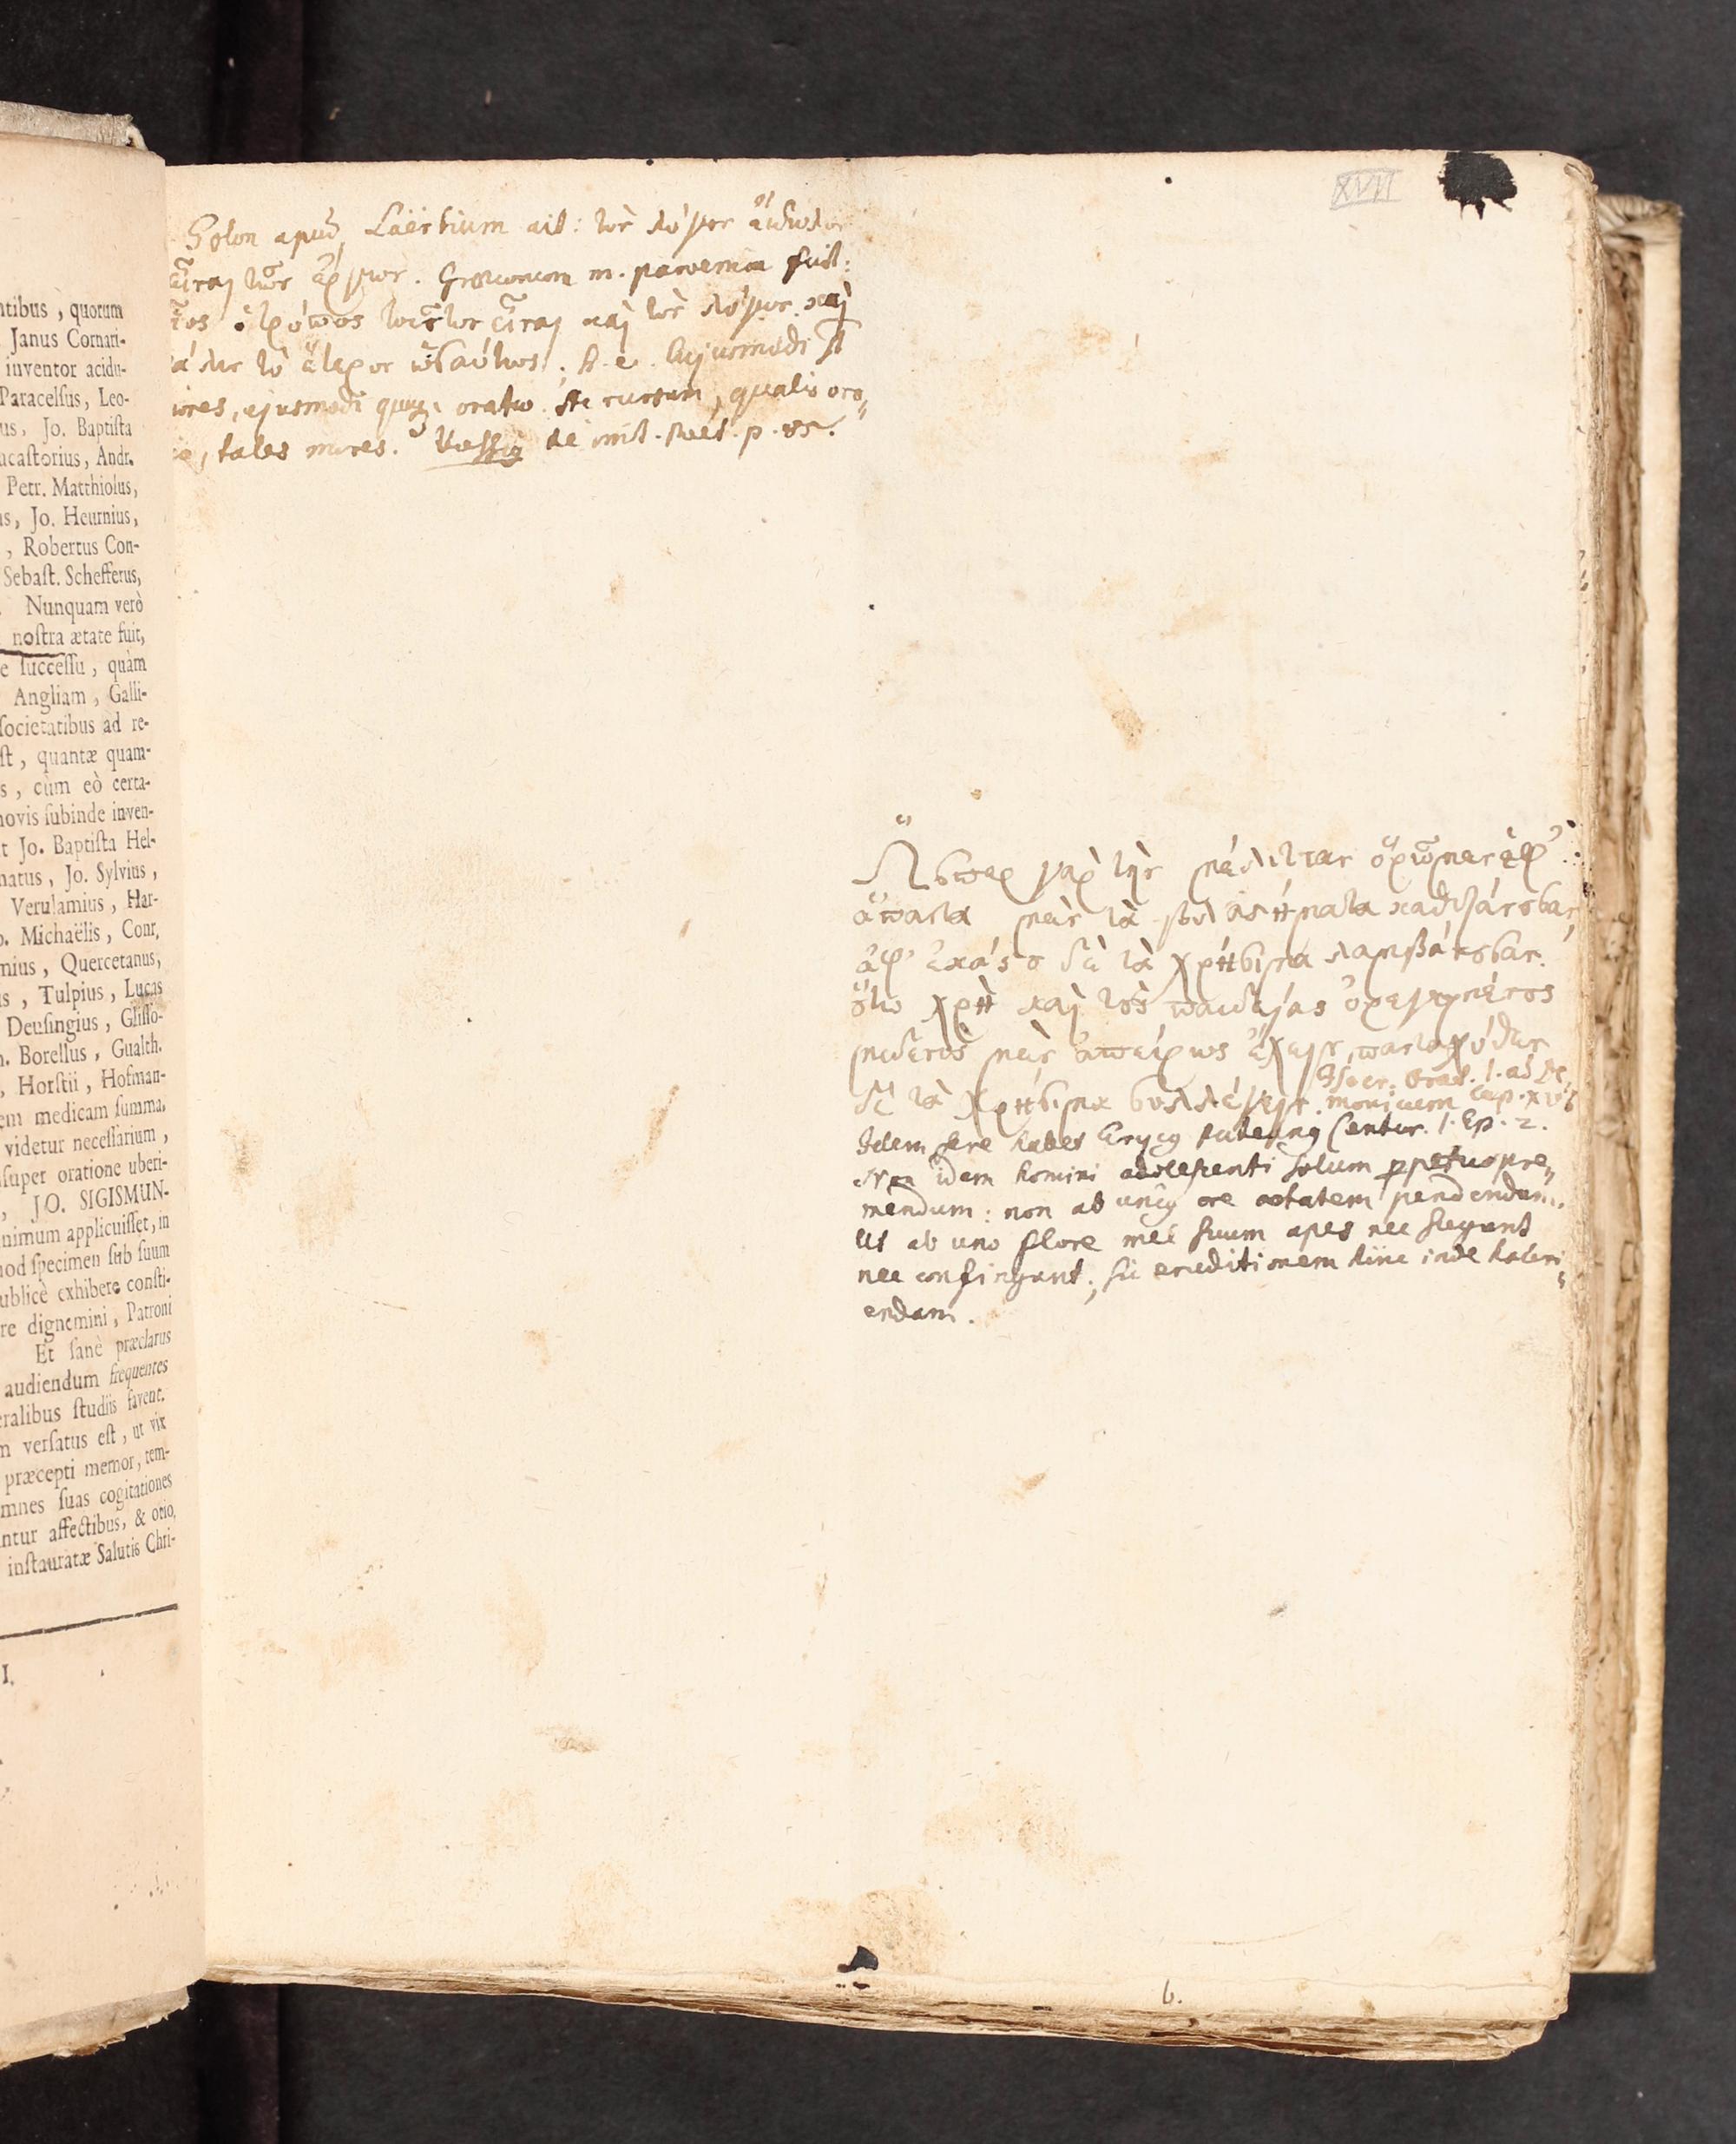 ntibus, quorum
Janus Cornari-
inventor acidu-
Paracelſus, Leo-
us, Jo. Baptiſta
acaſtorius, Andr.
Petr. Matthiolus,
us, Jo. Heurnius,
, Robertus Con-
Sebaſt. Schefferus,
. Nunquam verò
noſtra ætate fuit,
e ſucceſſu, quàm
Angliam, Galli-
ſocietatibus ad re-
ſt, quantæ quam-
s, cùm eò certa-
novis ſubinde inven-
t Jo. Baptiſta Hel-
natus, Jo. Sylvius,
Verulamius, Har-
o. Michaëlis, Conr.
nius, Quercetanus,
us, Tulpius, Lucas
Deuſingius, Gliſſo-
n. Borellus, Gualth.
, Horſtii, Hofman-
em medicam ſumma,
videtur neceſſarium,
nſuper oratione uberi-
, JO. SIGISMUN-
nimum applicuiſſet, in
nod ſpecimen ſub ſuum
ublicè exhibere conſti-
re dignemini, Patroni
Et ſanè præclarus
audiendum frequentes
eralibus ſtudiis favent.
m verſatus eſt, ut vix
præcepti memor, tem-
omnes ſuas cogitationes
antur affectibus, & otio,
inſtauratæ Salutis Chri-
I.
Solon apud Laërtium ait: τὸν λόγον εἴδωλον
εἶναι τῶν ἔργων. Græcorum m. parœmia fuit:
ὁ τρόπος τοιοῦτον εἶναι καὶ τὸν λόγον. καὶ
τὸ ἕτερον ὡσαύτως. h. e. Cujusmodi st
mores, ejusmodi quoque oratio. Ac rursum, qualis ora-
io, tales mores. Vossius de imit. p. 85.
XVII
Ὥσπερ γὰρ τὴν μέλιτταν ὁρῶμεν ἐφ'
ἅπαντα μὲν τὰ βλαστήματα καθιζάνουσαν,
ἀφ' ἑκάστου δὲ τὰ χρήσιμα λαμβάνουσαν.
οὕτω χρὴ καὶ τοὺς παιδείας ὀρεγομένους
μηδενὸς μὲν ἀπείρως ἔχειν, πανταχόθεν
δὲ τὰ χρήσιμα συλλέγειν. Isocr. Orat. 1. ad De-
monicum Cap. XVI
Idem fere habet Erycius Puteanus Centur. 1. Ep. 2.
Non idem homini adolescenti solum perpetuo pre-
mendum: non ab unius ore aetatem pendendum.
Ut ab uno flore mel suum apes nec sugunt
nec confingunt; sic eruditionem hinc inde hauri-
endam.
b.